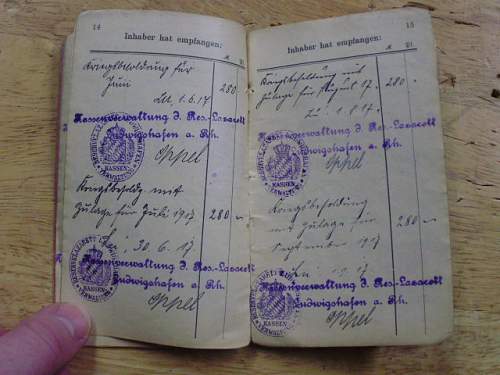 14
Inhaber hat empfangen:
Kriegsbesoldung für
Juni
280
1.6.17
Kassenverwaltung d. Res-Lazarett
Ludwigshafen a. Rh.
KASSEN-
VERWALTUNG
Oppel
Kriegsbesoldg. mit
Zulage für Juli 1917
280
30.6.17
Kassenverwaltung d. Res-Lazarett
Ludwigshafen a. Rh.
Oppel
15
Inhaber hat empfangen:
Kriegsbesoldung mit
Zulage für August 17.
280
1.8.17.
Kassenverwaltung d. Res-Lazarett
Ludwigshafen a. Rh.
KASSEN-
VERWALTUNG
Oppel
Kriegsbesoldung
mit Zulage für
September 1917
280
Kassenverwaltung d. Res-Lazarett
Ludwigshafen a. Rh.
KASSEN-
Oppel